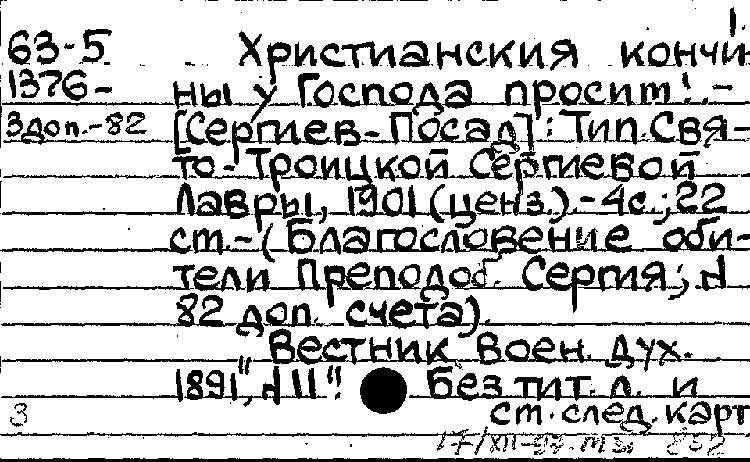 1.
63-5 Христианския кончи
1376- ны у Господа просит!.-
3доп.-82 [Сергиев-Посад]: Тип.Свя-
то-Троицкой Сергиевой
Лавры, 1901 (ценз.).-4с.;22
см.-(Благословение оби-
тели Преподоб. Сергия; N
82 доп. счета).
"Вестник воен. дух.
1891", N 11". Без тит. л. и
3 см.след.карт
17/XII-